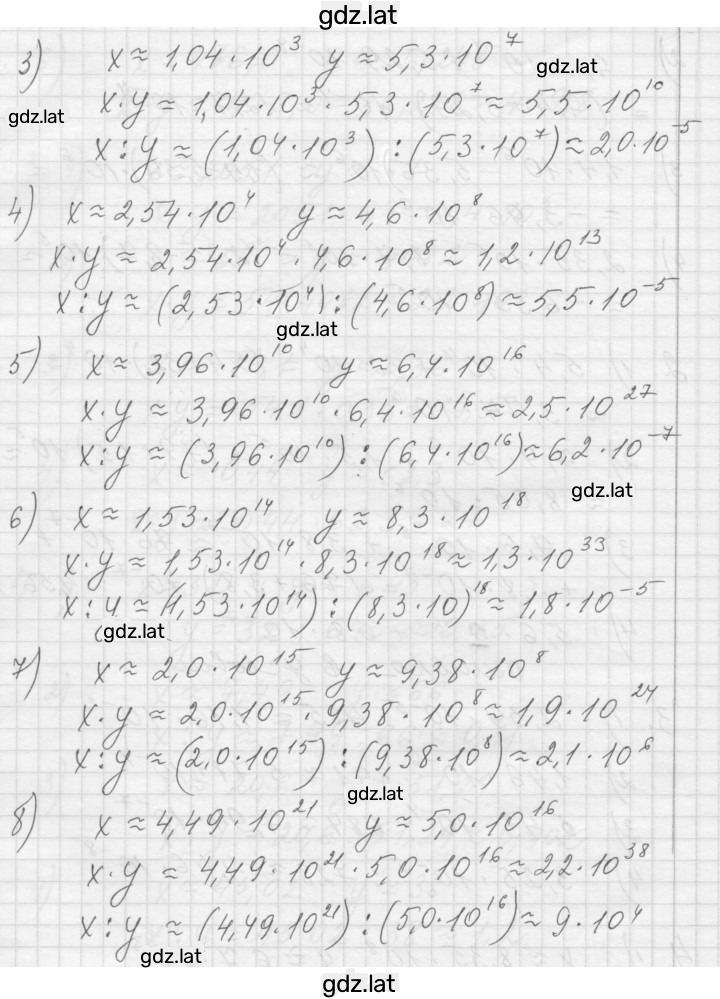 gdz.lat
3) x ≈ 1,04·10³ y ≈ 5,3·10⁷
gdz.lat
x·y ≈ 1,04·10³·5,3·10⁷ ≈ 5,5·10¹⁰
gdz.lat
x:y ≈ (1,04·10³):(5,3·10⁷) ≈ 2,0·10⁻⁵
4) x ≈ 2,54·10⁴ y ≈ 4,6·10⁸
x·y ≈ 2,54·10⁴·4,6·10⁸ ≈ 1,2·10¹³
x:y ≈ (2,53·10⁴):(4,6·10⁸) ≈ 5,5·10⁻⁵
gdz.lat
5) x ≈ 3,96·10¹⁰ y ≈ 6,4·10¹⁶
x·y ≈ 3,96·10¹⁰·6,4·10¹⁶ ≈ 2,5·10²⁷
x:y ≈ (3,96·10¹⁰):(6,4·10¹⁶) ≈ 6,2·10⁻⁷
gdz.lat
6) x ≈ 1,53·10¹⁴ y ≈ 8,3·10¹⁸
x·y ≈ 1,53·10¹⁴·8,3·10¹⁸ ≈ 1,3·10³³
x:y ≈ (1,53·10¹⁴):(8,3·10)¹⁸ ≈ 1,8·10⁻⁵
gdz.lat
7) x ≈ 2,0·10¹⁵ y ≈ 9,38·10⁸
x·y ≈ 2,0·10¹⁵·9,38·10⁸ ≈ 1,9·10²⁴
x:y ≈ (2,0·10¹⁵):(9,38·10⁸) ≈ 2,1·10⁶
gdz.lat
8) x ≈ 4,49·10²¹ y ≈ 5,0·10¹⁶
x·y ≈ 4,49·10²¹·5,0·10¹⁶ ≈ 2,2·10³⁸
x:y ≈ (4,49·10²¹):(5,0·10¹⁶) ≈ 9·10⁴
gdz.lat
gdz.lat